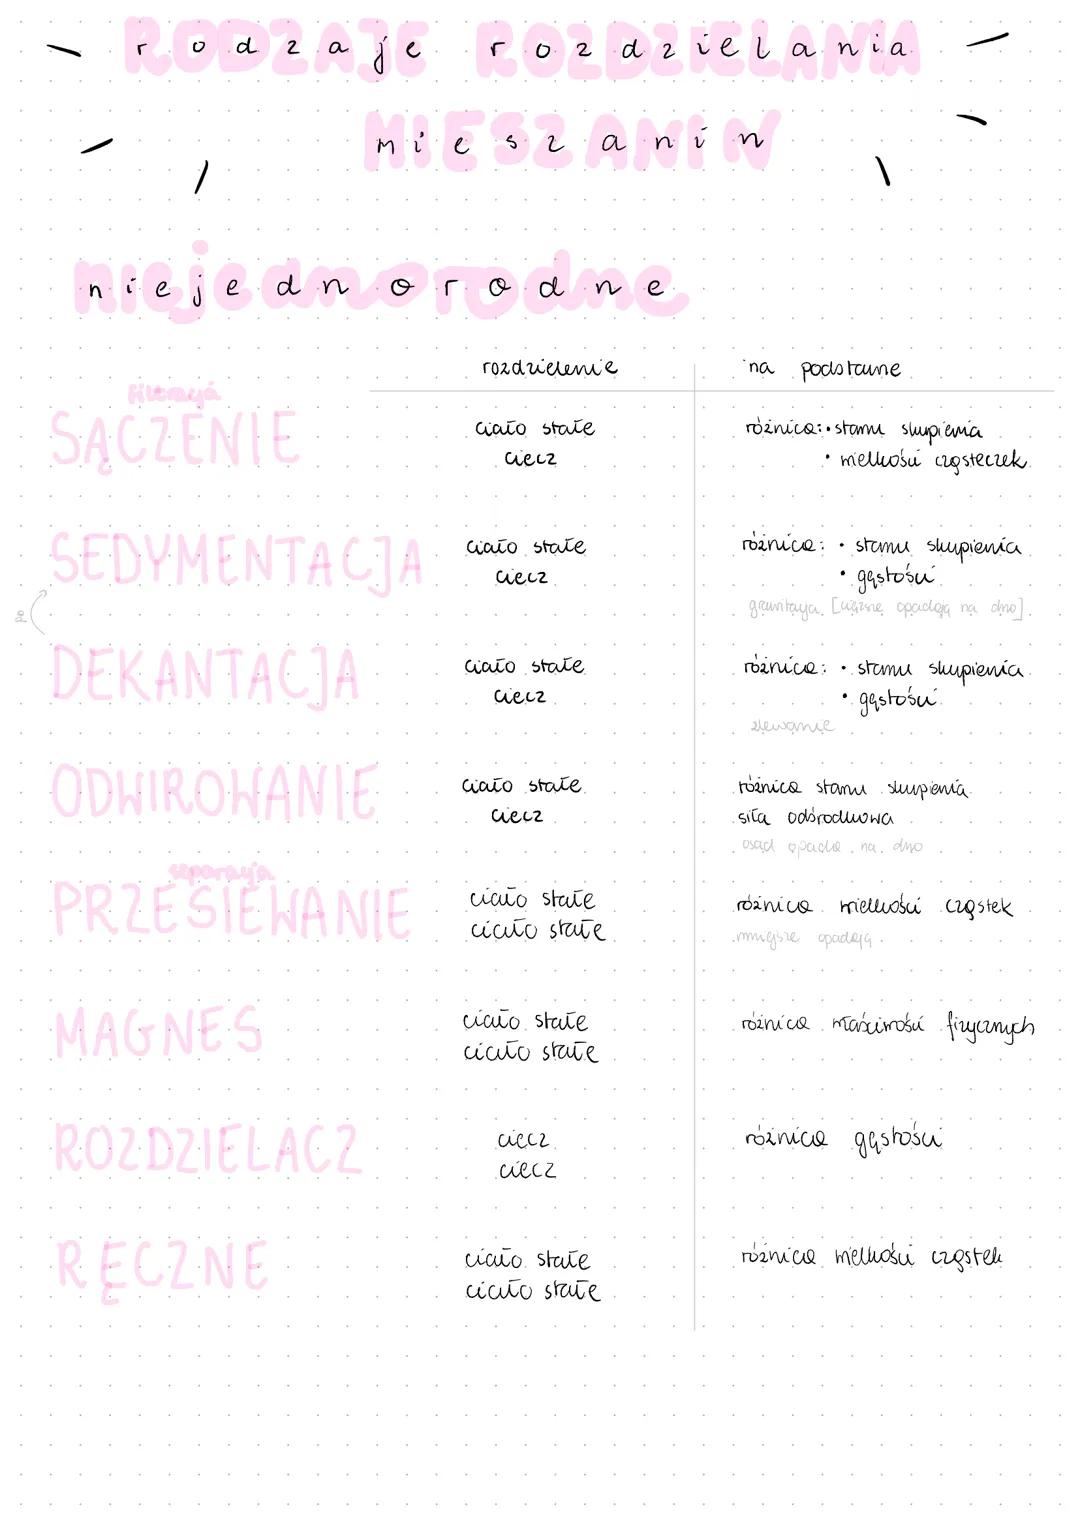 rodzaje rozdzielania
mieszanin
niejednorodne
rozdzielenie na podstawie
filtracja
SĄCZENIE
ciało stałe
ciecz
różnica: • stanu skupienia
• wielkości cząsteczek
SEDYMENTACJA
ciało stałe
ciecz
różnica: • stanu skupienia
• gęstości
grawitacja [cięższe opadają na dno]
DEKANTACJA
ciało stałe
ciecz
różnica: • stanu skupienia
• gęstości
zlewanie
ODWIROWANIE
ciało stałe
ciecz
różnica stanu skupienia
siła odśrodkowa
osad opada na dno
separacja
PRZESIEWANIE
ciało stałe
ciało stałe
różnica wielkości cząstek
mniejsze opadają
MAGNES
ciało stałe
ciało stałe
różnica właściwości fizycznych
ROZDZIELACZ
ciecz
ciecz
różnica gęstości
RĘCZNE
ciało stałe
ciało stałe
różnica wielkości cząstek